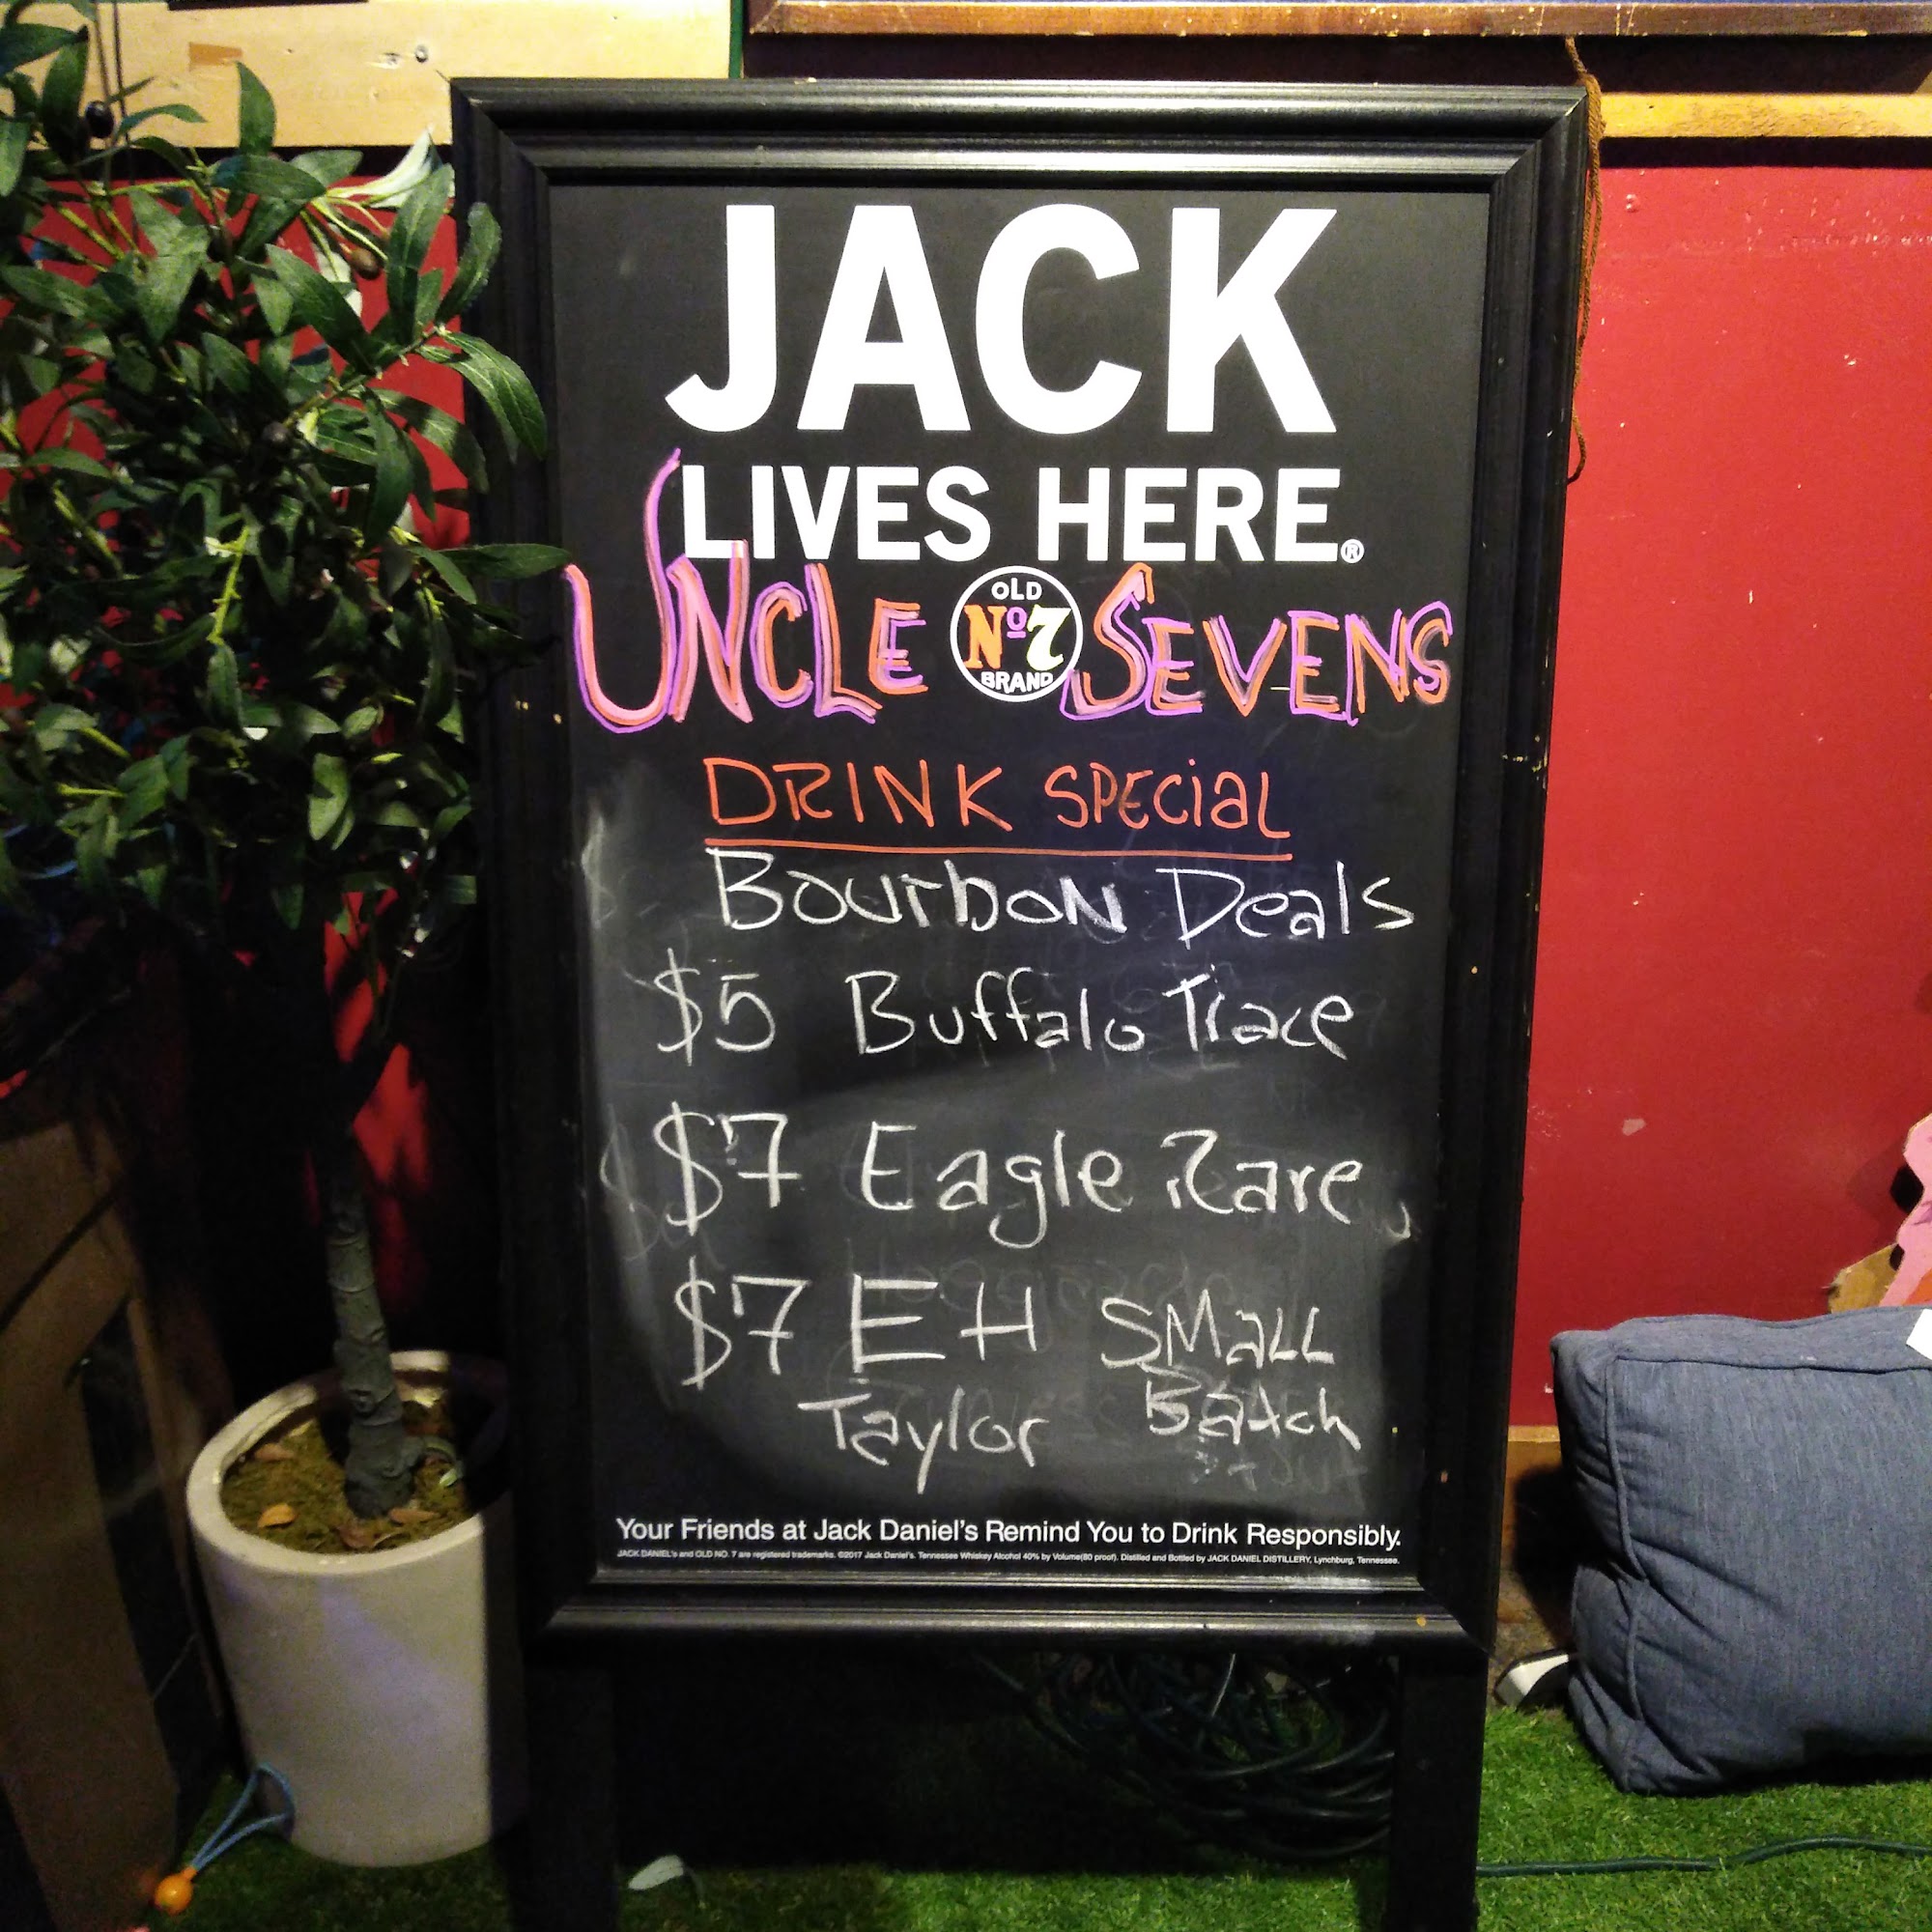 JACK
LIVES HERE®
UNCLE SEVENS
OLD
Nº7
BRAND
DRINK SPECiaL
BourboN Deals
$5 Buffalo Trace
$7 Eagle Rare
$7 EH SMaLL
Taylor Batch
Your Friends at Jack Daniel's Remind You to Drink Responsibly.
JACK DANIEL'S and OLD NO. 7 are registered trademarks. ©2017 Jack Daniel's. Tennessee Whiskey Alcohol 40% by Volume(80 proof). Distilled and Bottled by JACK DANIEL DISTILLERY, Lynchburg, Tennessee.